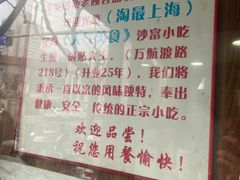 (淘最上海)
美食》沙富小吃
生煎、锅贴大王，(万航渡路
218号)(开业25年)，我们将
秉承一直以来的风味独特，奉出
健康、安全、传统的正宗小吃。
欢迎品尝！
祝您用餐愉快！